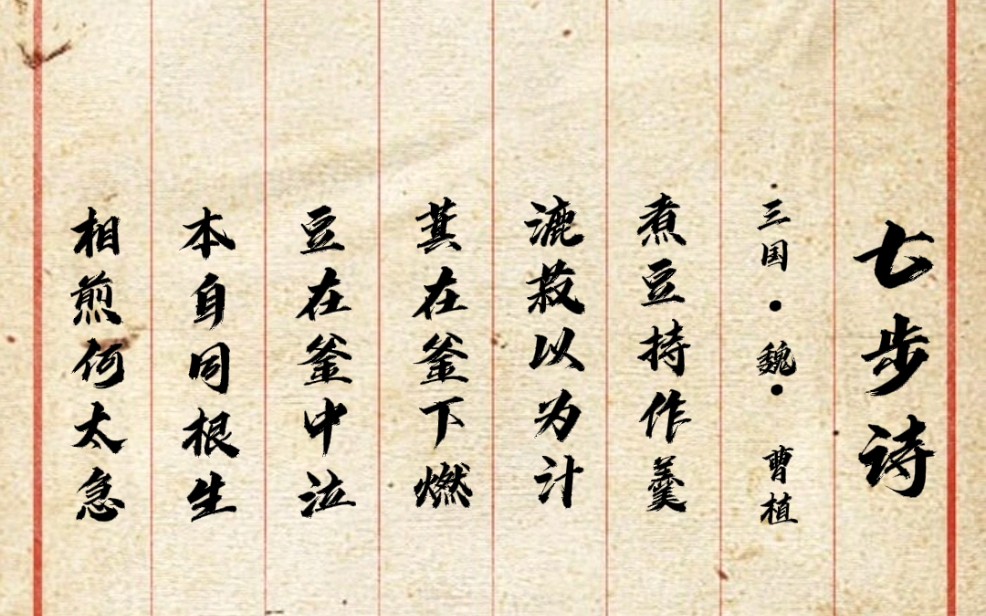 七步诗
三国·魏·曹植
煮豆持作羹
漉菽以为计
萁在釜下燃
豆在釜中泣
本自同根生
相煎何太急